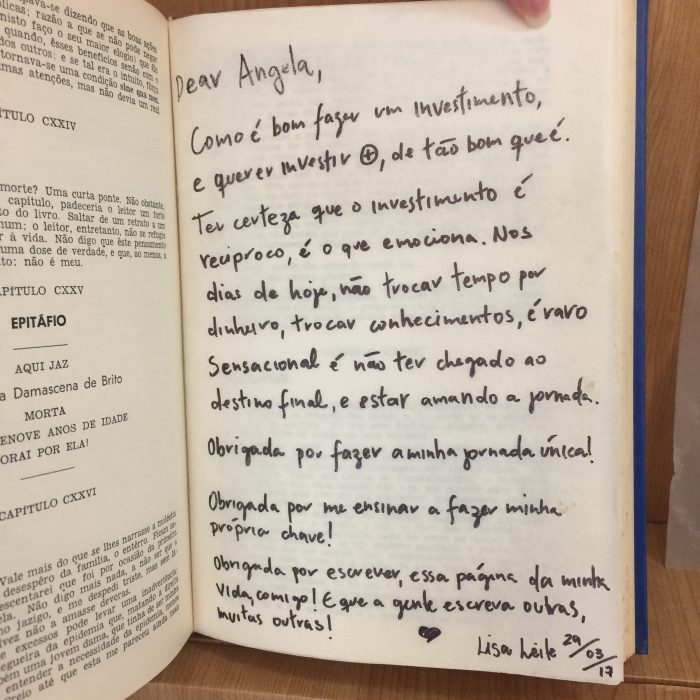 pava-se dizendo que as boas ações
blicas; razão a que se não pode negar
nisto faço o seu maior elogio) que êle
quando, êsses benefícios senão com o
dos outros; e se tal era o intuito, força
tornava-se uma condição sine qua non.
mas atenções, mas não devia um real
ÍTULO CXXIV
morte? Uma curta ponte. Não obstante,
capítulo, padeceria o leitor um forte
to do livro. Saltar de um retrato a um
mum; o leitor, entretanto, não se refugia
r à vida. Não digo que êste pensamento
uma dose de verdade, e que, ao menos, a
to: não é meu.
CAPÍTULO CXXV
EPITÁFIO
AQUI JAZ
a Damascena de Brito
MORTA
ENOVE ANOS DE IDADE
ORAI POR ELA!
CAPÍTULO CXXVI
Vale mais do que se lhes narrasse a moléstia
desespêro da família, o entêrro. Ficam sa-
escentarei que foi por ocasião da primeira
ela. Não digo mais nada, a não ser que a
jazigo, e me despedi triste, mas sem lá-
lvez não a amasse deveras.
excessos pode levar uma inadvertência;
egueira da epidemia que, matando à direita
bém uma jovem dama, que tinha de ser minha
necessidade da epidemia, menos ainda
reio até que esta me pareceu ainda mais
Dear Angela,
Como é bom fazer um investimento,
e querer investir ⊕, de tão bom que é.
Ter certeza que o investimento é
recíproco, é o que emociona. Nos
dias de hoje, não trocar tempo por
dinheiro, trocar conhecimentos, é raro
Sensacional é não ter chegado ao
destino final, e estar amando a jornada.
Obrigada por fazer a minha jornada única!
Obrigada por me ensinar a fazer minha
própria chave!
Obrigada por escrever, essa página da minha
vida, comigo! E que a gente escreva outras,
muitas outras! ♥
Lisa Leite 29/03/17